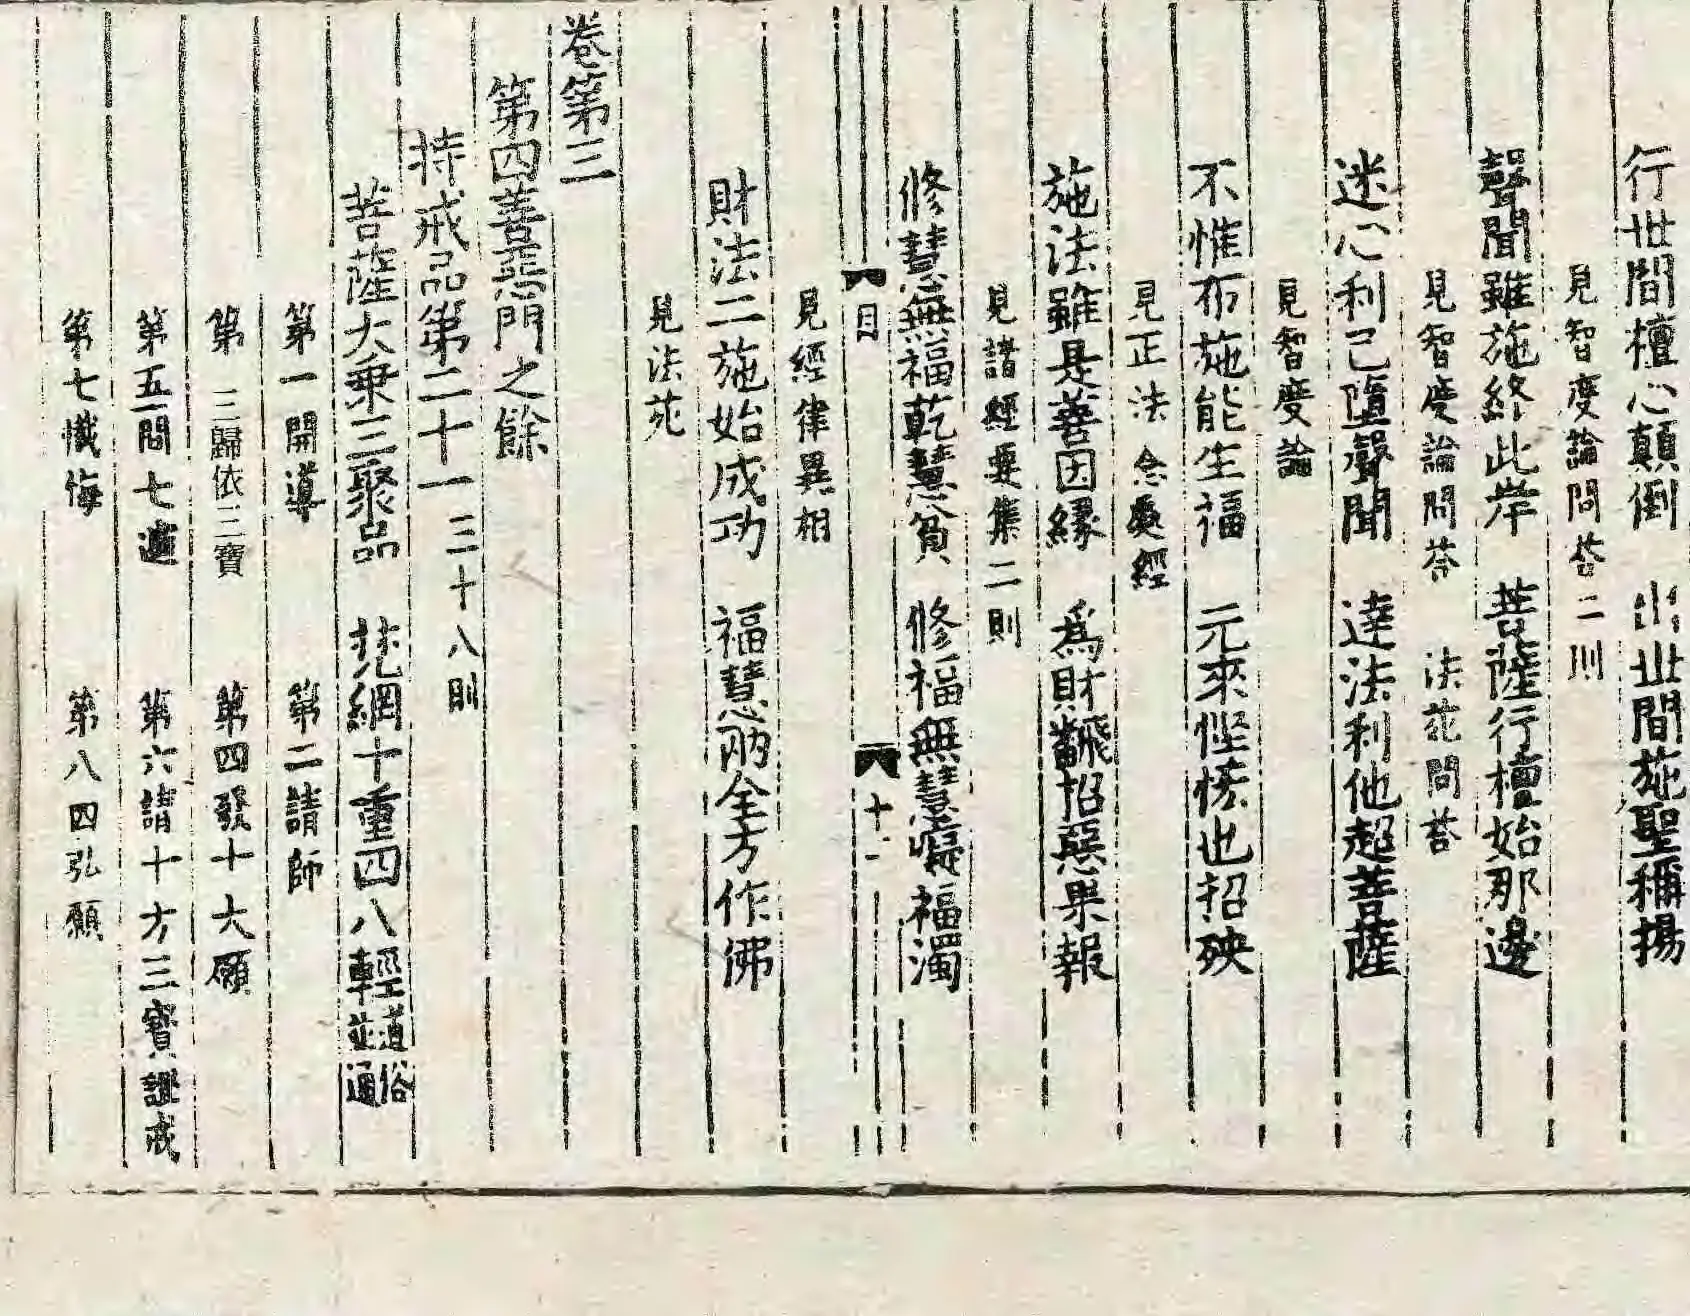 行世間檀心顛倒　出世間施聖稱揚
見智度論問荅二則
聲聞雖施終此岸　菩薩行檀始那邊
見智度論問荅　法苑問荅
迷心利己墮聲聞　達法利他超菩薩
見智度論
不惟布施能生福　元來慳悋也招殃
見正法念處經
施法雖是善因緣　為財飜招惡果報
見諸經要集二則
修慧無福乾慧貧　修福無慧癡福濁
目　十一
見經律異相
財法二施始成功　福慧兩全方作佛
見法苑
卷第三
第四善惡門之餘
持戒品第二十一三十八則
菩薩大乗三聚品　梵網十重四八輕道俗並通
第一開導　第二請師
第三歸依三寶　第四發十大願
第五問七遮　第六請十方三寶證戒
第七懺悔　第八四弘願